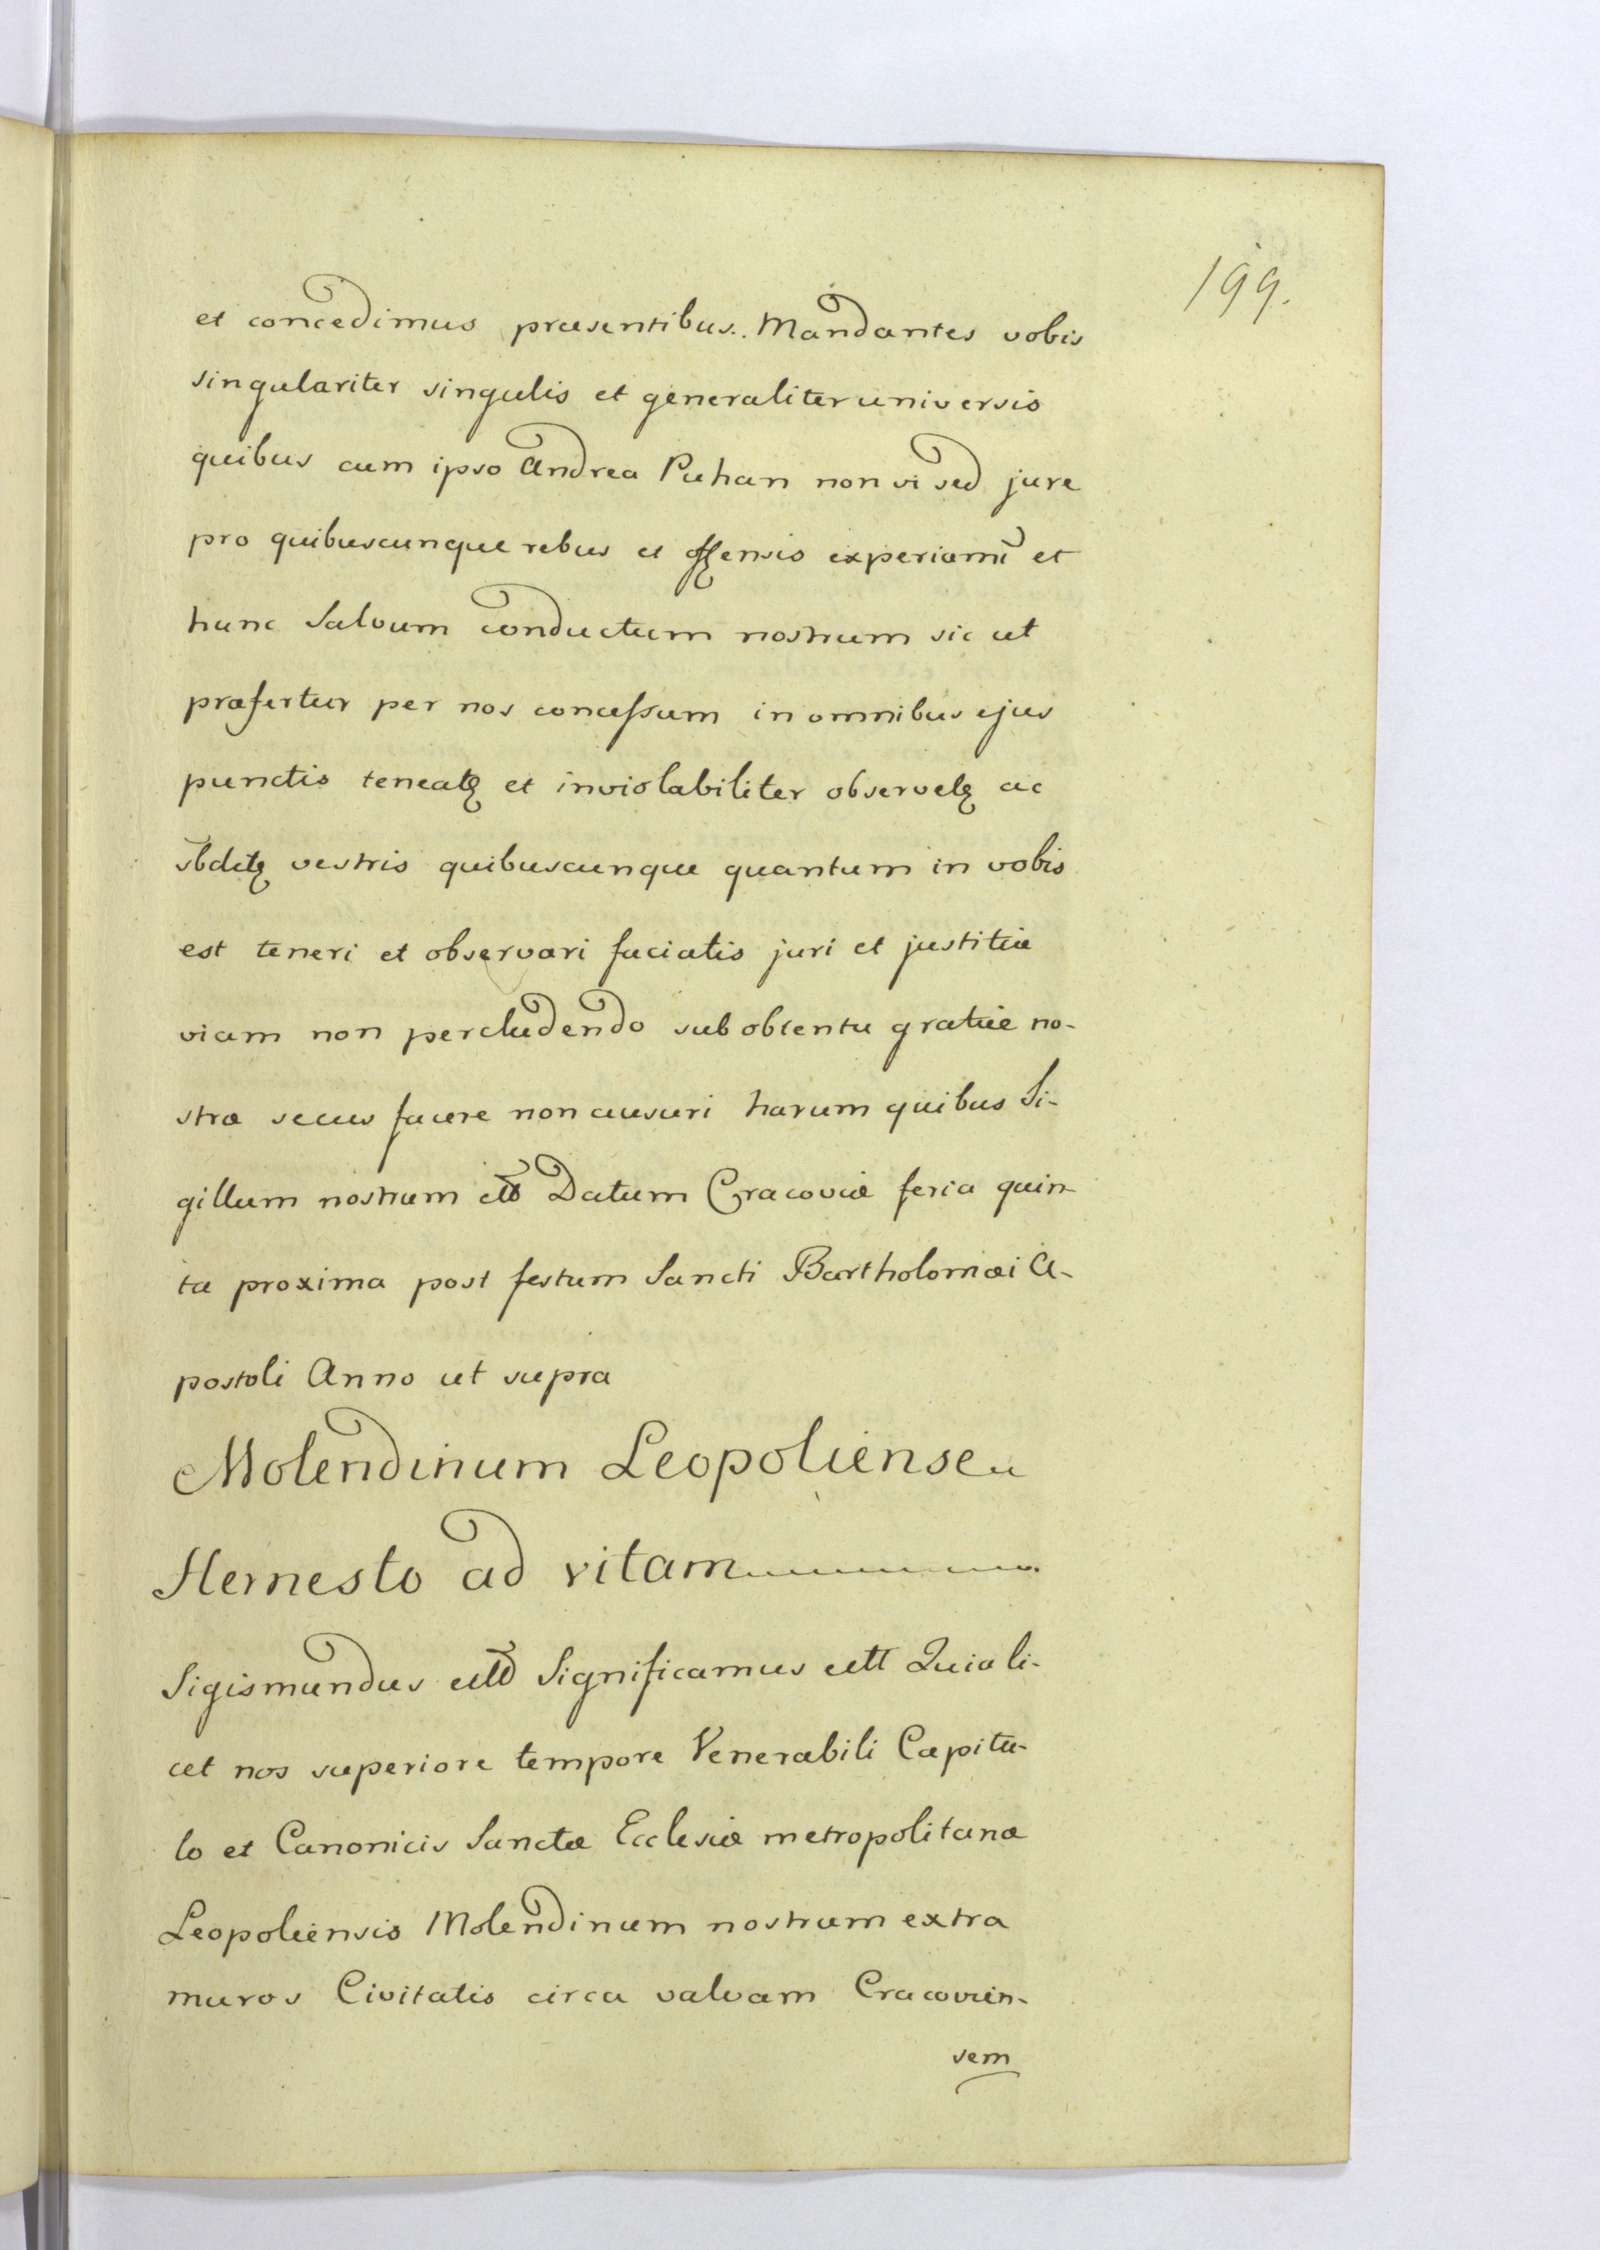 199.
et concedimus præsentibus. Mandantes vobis
singulariter singulis et generaliter universis
quibus cum ipso Andrea Puhan non vi sed jure
pro quibuscunque rebus et offensis experiami et
hunc Salvum conductum nostrum sic ut
præfertur per nos concessum in omnibus ejus
punctis teneatꝫ et inviolabiliter observetꝫ ac
sbditꝫ vestris quibuscunque quantum in vobis
est teneri et observari faciatis juri et justitiæ
viam non percludendo sub obtentu gratiæ no-
stræ secus facere non ausuri harum quibus Si-
gillum nostrum ettt Datum Cracoviæ feria quin-
ta proxima post festum Sancti Bartholomæi A-
postoli Anno ut supra
Molendinum Leopoliense
Hernesto ad vitam
Sigismundus ettt Significamus ettt Quia li-
cet nos superiore tempore Venerabili Capitu-
lo et Canonicis Sanctæ Ecclesiæ metropolitanæ
Leopoliensis Molendinum nostrum extra
muros Civitatis circa valvam Cracovien-
sem